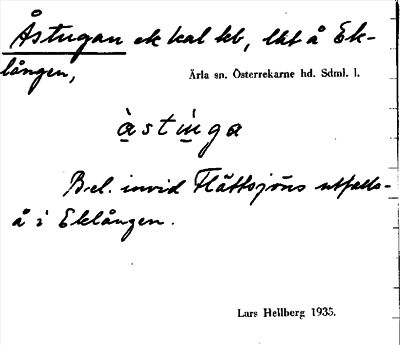 Åstugan ek kal kb, lht å Ek-
lången,
Ärla sn. Österrekarne hd. Sdml. l.
àstùga
Bel. invid Flättsjöns utfalls-
å i Eklången.
Lars Hellberg 1935.